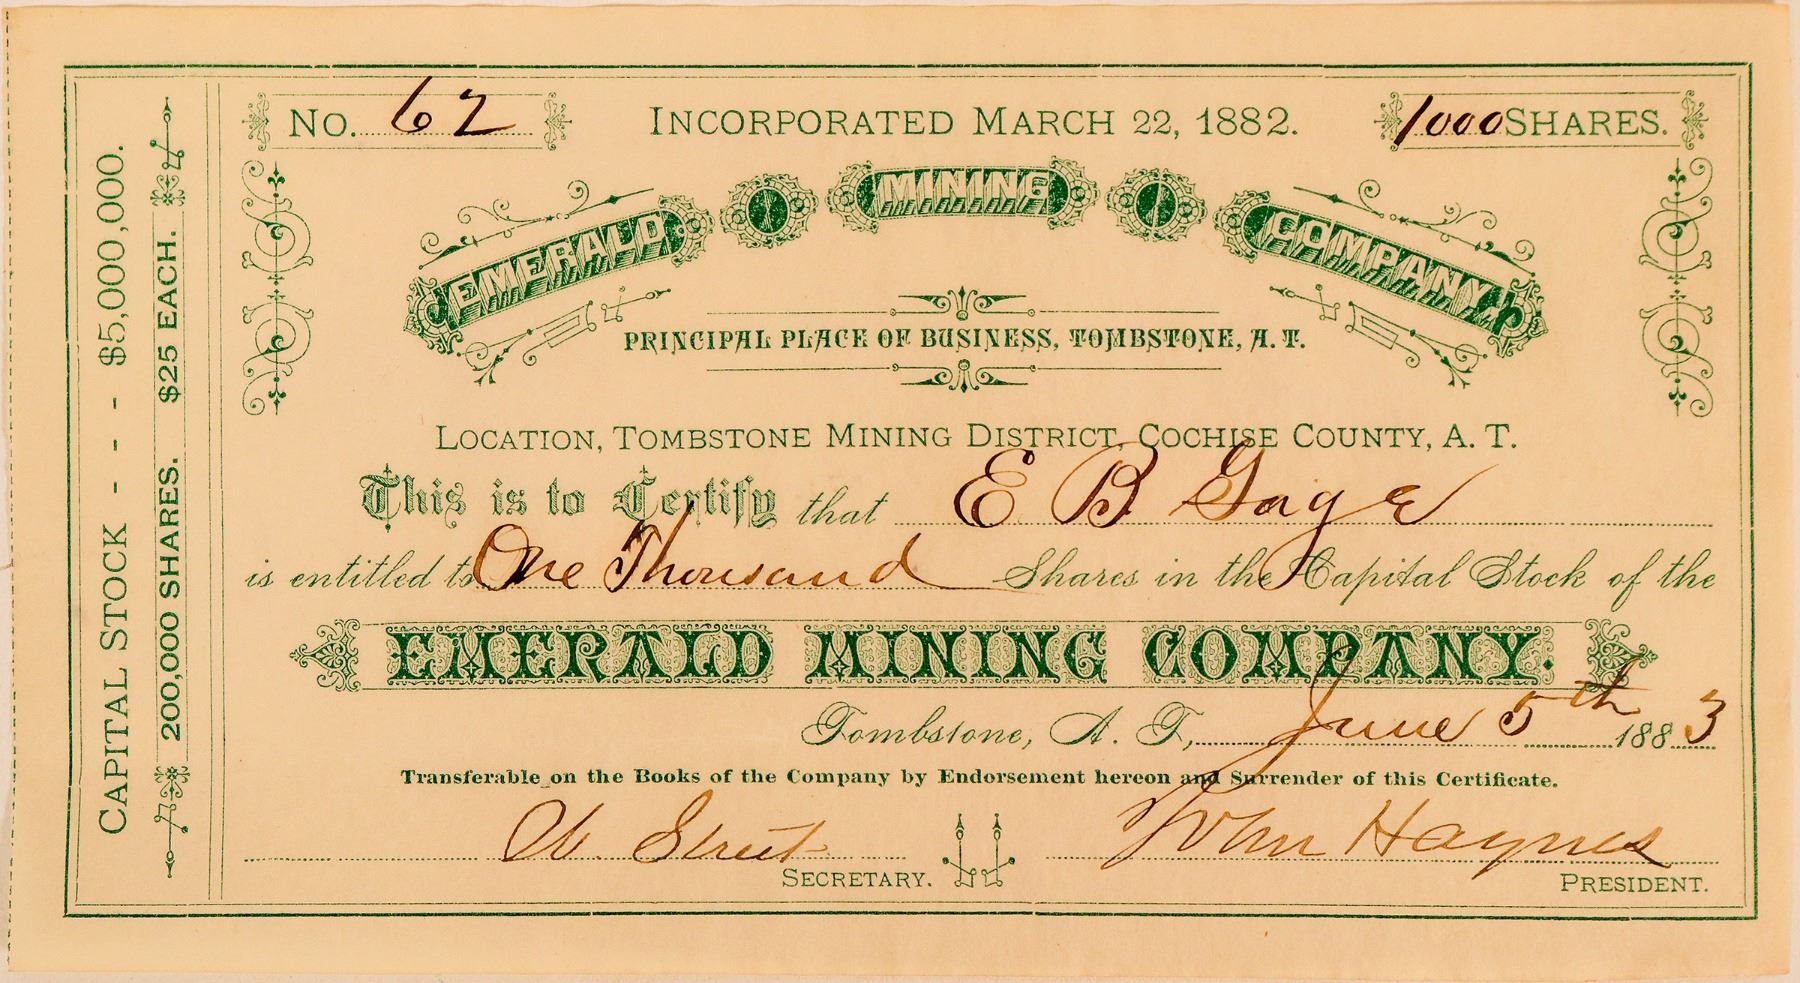 CAPITAL STOCK - - - $5,000,000.
200,000 SHARES. $25 EACH.
No. 62
INCORPORATED MARCH 22, 1882.
1000 SHARES.
EMERALD MINING COMPANY.
PRINCIPAL PLACE OF BUSINESS, TOMBSTONE, A. T.
LOCATION, TOMBSTONE MINING DISTRICT, COCHISE COUNTY, A. T.
This is to Certify that E B Gage
is entitled to One Thousand Shares in the Capital Stock of the
EMERALD MINING COMPANY.
Tombstone, A. T., June 5th 1883
Transferable on the Books of the Company by Endorsement hereon and Surrender of this Certificate.
Street John Haynes
SECRETARY. PRESIDENT.